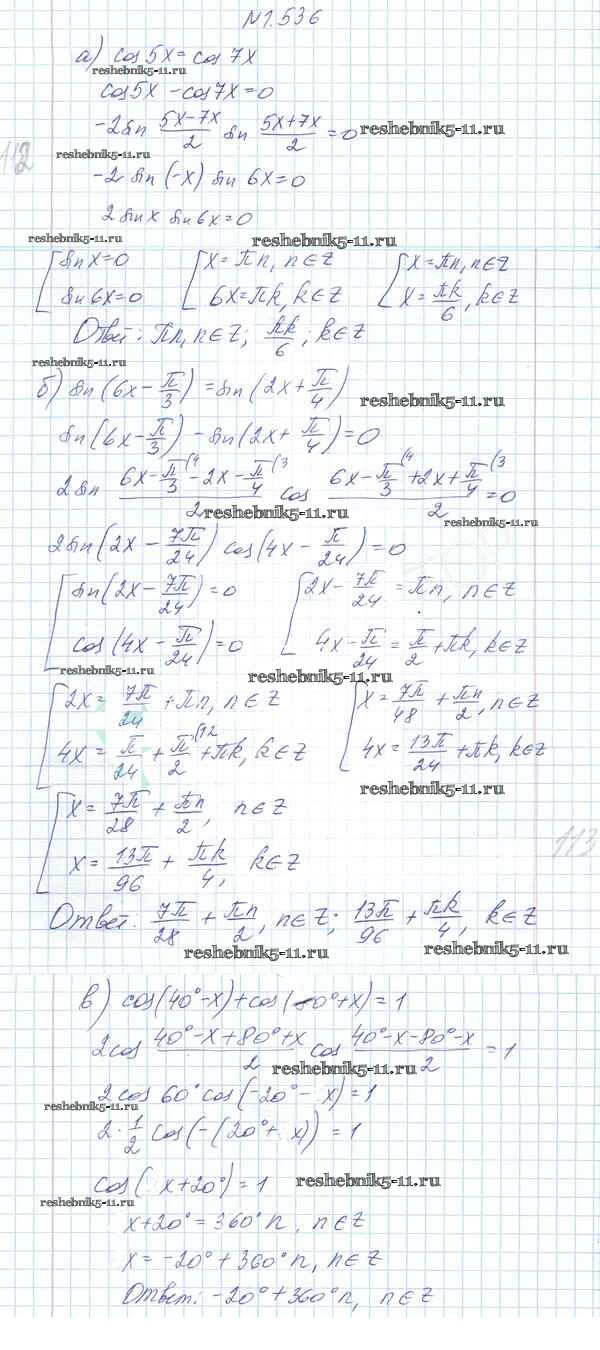 №1.536
а) cos5x = cos7x
reshebnik5-11.ru
cos5x - cos7x = 0
-2sin (5x-7x)/2 sin (5x+7x)/2 = 0 reshebnik5-11.ru
reshebnik5-11.ru
-2 sin(-x) sin 6x = 0
2 sinx sin6x = 0
reshebnik5-11.ru reshebnik5-11.ru
[sinx=0 [x=πn, n∈Z [x=πn, n∈Z
[sin6x=0 [6x=πk, k∈Z [x=πk/6, k∈Z
Ответ: πn, n∈Z; πk/6; k∈Z
reshebnik5-11.ru
б) sin(6x-π/3) = sin(2x+π/4)
reshebnik5-11.ru
sin(6x-π/3) - sin(2x+π/4) = 0
2sin (6x-π/3(4 -2x-π/4(3)/2 cos (6x-π/3(4 +2x+π/4(3)/2 = 0
reshebnik5-11.ru reshebnik5-11.ru
2sin(2x-7π/24) cos(4x-π/24) = 0
[sin(2x-7π/24)=0 [2x-7π/24=πn, n∈Z
[cos(4x-π/24)=0 [4x-π/24=π/2+πk, k∈Z
reshebnik5-11.ru reshebnik5-11.ru
[2x=7π/24+πn, n∈Z [x=7π/48+πn/2, n∈Z
[4x=π/24+π/2(12+πk, k∈Z [4x=13π/24+πk, k∈Z
reshebnik5-11.ru
[x=7π/28+πn/2, n∈Z
113
[x=13π/96+πk/4, k∈Z
Ответ: 7π/28+πn/2, n∈Z; 13π/96+πk/4, k∈Z
reshebnik5-11.ru reshebnik5-11.ru
в) cos(40°-x)+cos(80°+x)=1
2cos (40°-x+80°+x)/2 cos (40°-x-80°-x)/2 = 1
reshebnik5-11.ru
2cos 60° cos(-20°-x)=1
reshebnik5-11.ru
2·1/2 cos(-(20°+x))=1
cos(x+20°)=1 reshebnik5-11.ru
reshebnik5-11.ru
x+20°=360°n, n∈Z
x=-20°+360°n, n∈Z
Ответ: -20°+360°n, n∈Z